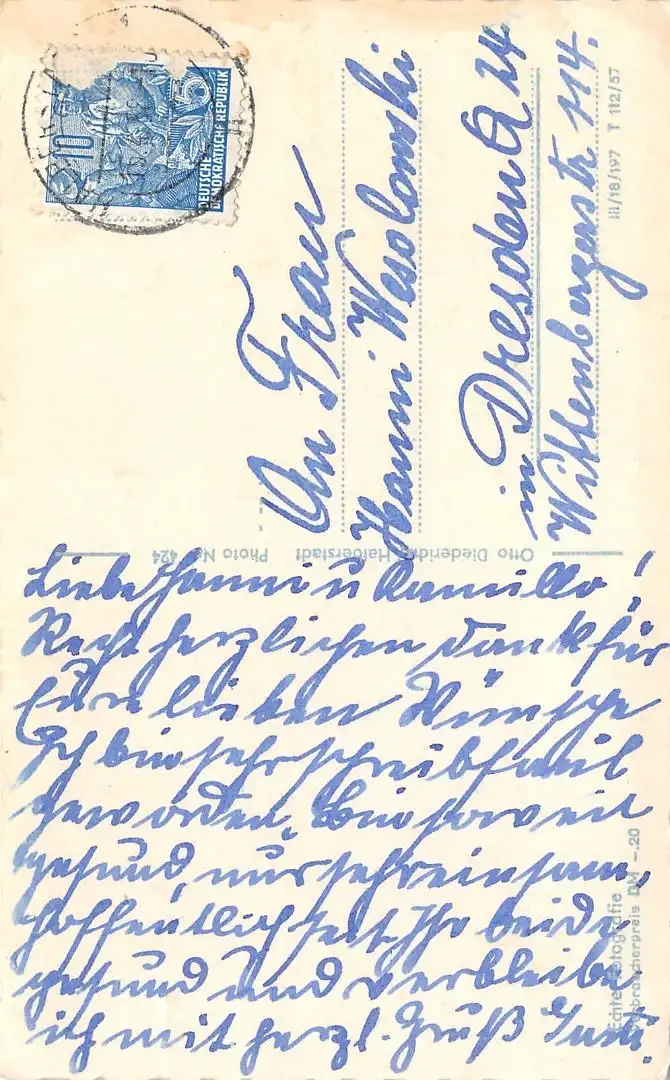 Liebe Hanni u Kamillo!
Recht herzlichen Dank für
Eure lieben Wünsche
Ich bin sehr schreibfaul
geworden. Bin soweit
gesund, nur sehr einsam,
hoffentlich seit Ihr beide
gesund und verbleibe
ich mit herzl. Gruß
An Frau
Hanni Wesolowski
in Dresden A 24
Wittenbergerstr 114.
10
5
DEUTSCHE
DEMOKRATISCHE REPUBLIK
III/18/197 T 112/57
Otto Diederich, Halberstadt Photo No. 424
Echte Fotografie
Verbraucherpreis DM -.20